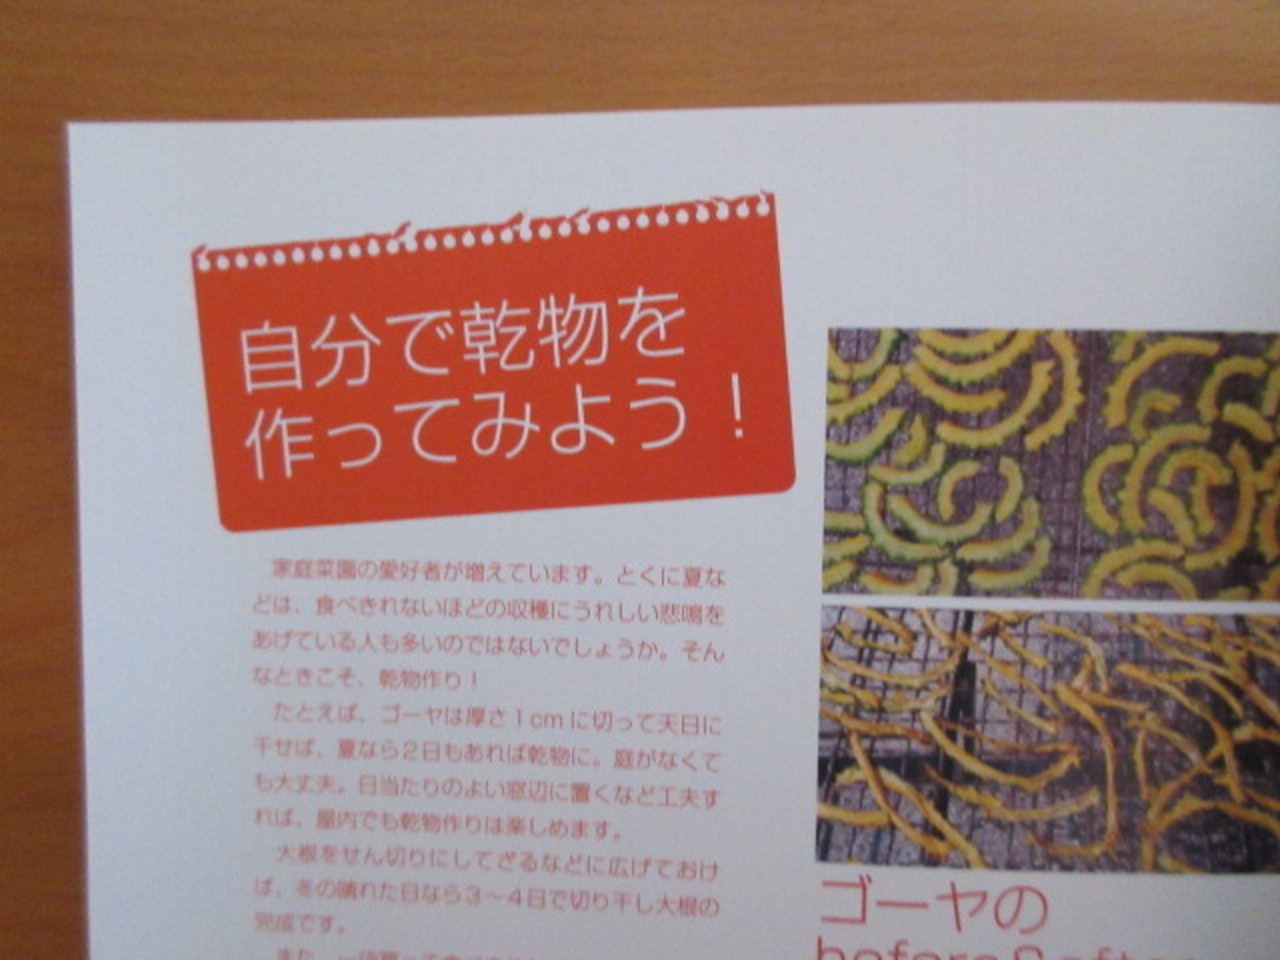 自分で乾物を
作ってみよう！
家庭菜園の愛好者が増えています。とくに夏な
どは、食べきれないほどの収穫にうれしい悲鳴を
あげている人も多いのではないでしょうか。そん
なときこそ、乾物作り！
たとえば、ゴーヤは厚さ1cmに切って天日に
干せば、夏なら2日もあれば乾物に。庭がなくて
も大丈夫。日当たりのよい窓辺に置くなど工夫す
れば、屋内でも乾物作りは楽しめます。
大根をせん切りにしてざるなどに広げておけ
ば、冬の晴れた日なら3～4日で切り干し大根の
完成です。
ゴーヤの
before&after